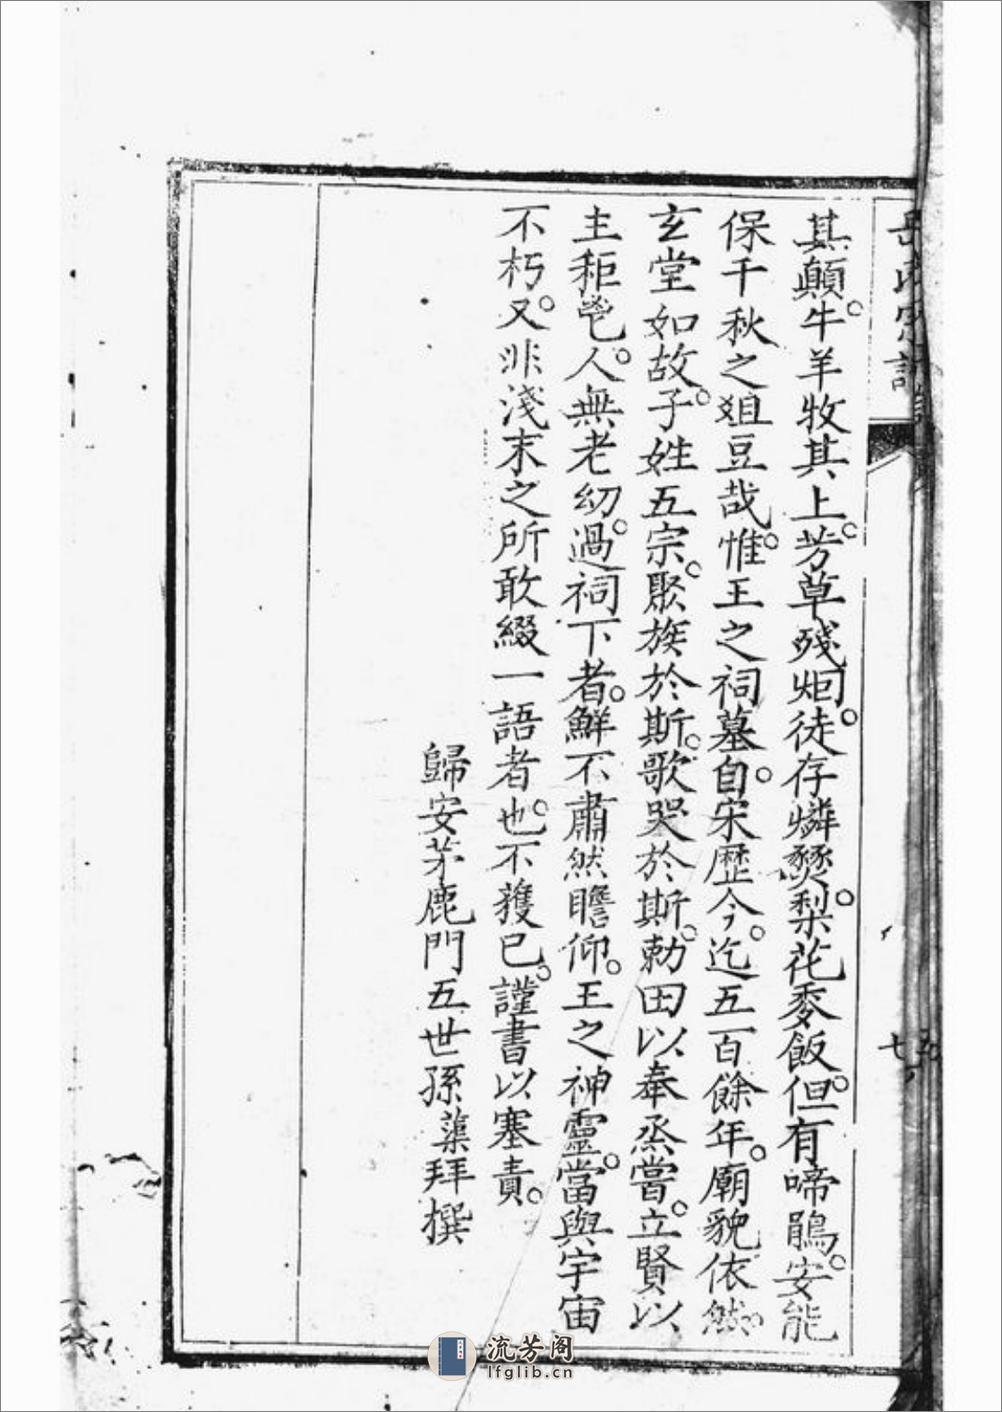 岳氏宗譜
其顛。牛羊牧其上。芳草殘炬。徒存燐燹。梨花麥飯。但有啼鵑。安能
保千秋之爼豆哉。惟王之祠墓。自宋歴今。迄五百餘年。廟貌依然。
玄堂如故。子姓五宗。聚族於斯。歌哭於斯。勅田以奉烝嘗。立賢以
主秬鬯。人無老幼。過祠下者。鮮不肅然瞻仰。王之神靈。當與宇宙
不朽。又非淺末之所敢綴一語者也。不獲已。謹書以塞責。
歸安茅鹿門五世孫蕖拜撰
流芳阁
lfglib.cn